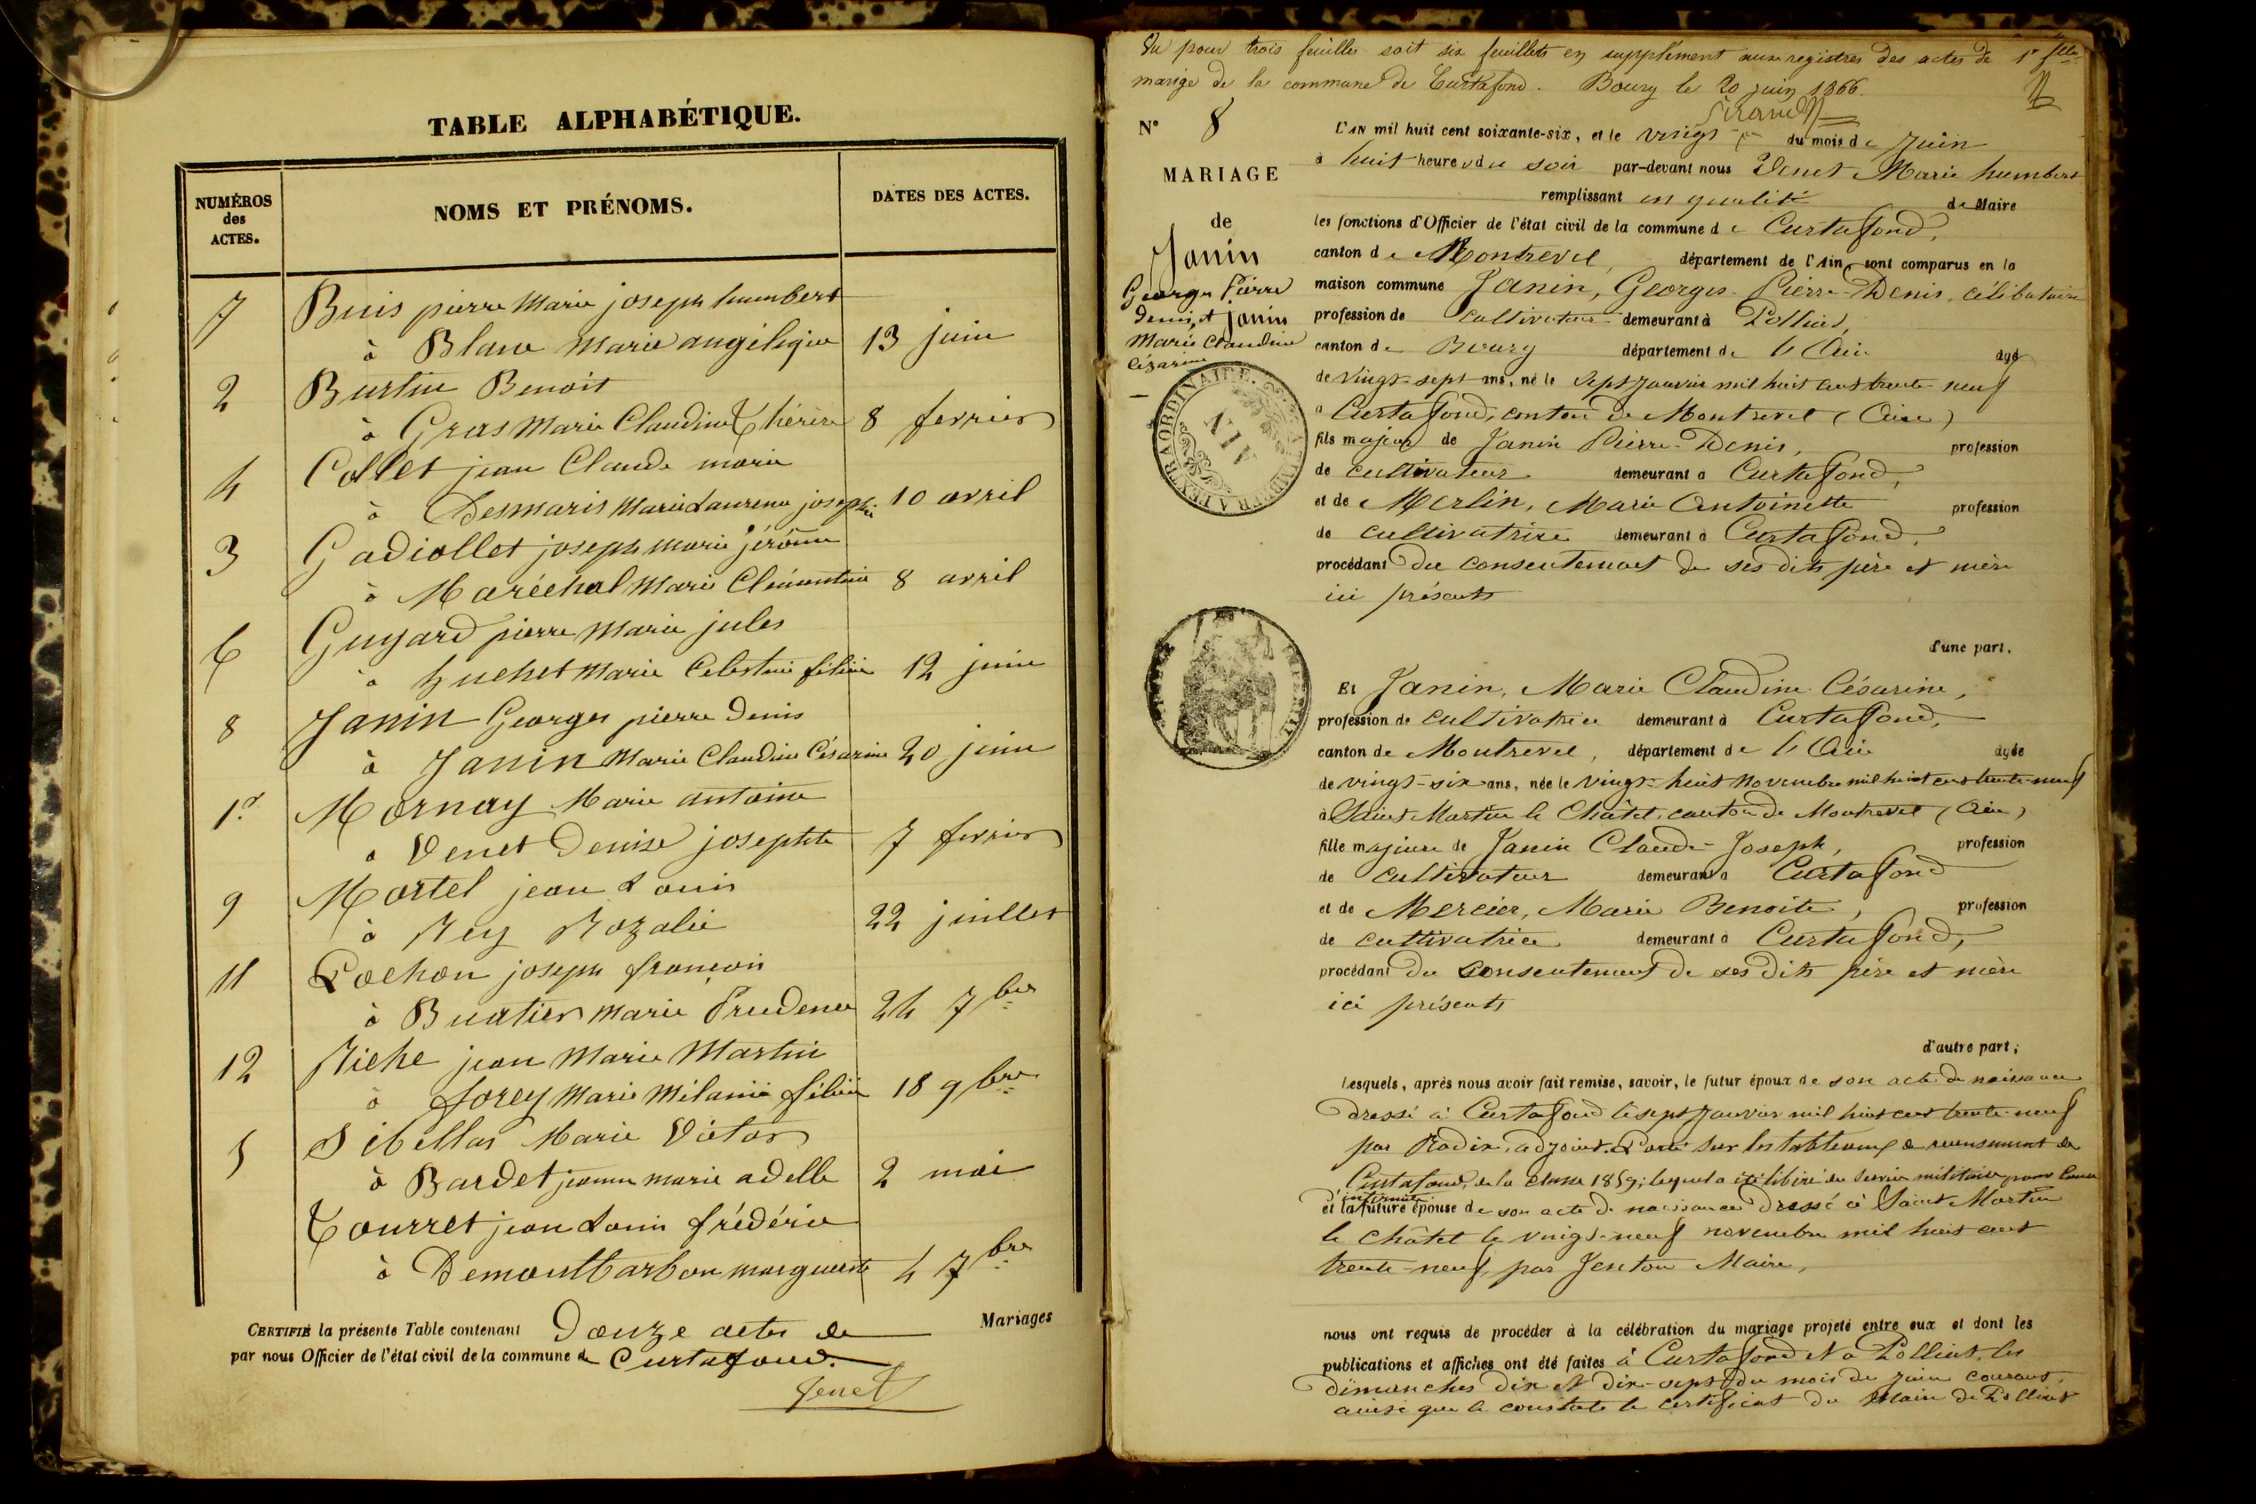 TABLE ALPHABÉTIQUE.
NUMÉROS
des
ACTES.
NOMS ET PRÉNOMS.
DATES DES ACTES.
7 Buis pierre Marie joseph humbert
à Blanc Marie angélique 13 juin
2 Burtin Benoit
à Gras Marie Claudine Thérèse 8 fevrier
4 Collet jean Claude marie
à Desmaris Marie Laurence josephte 10 avril
3 Gadiollet joseph marie jérôme
à Maréchal Marie Clémentine 8 avril
6 Guyard pierre Marie jules
à huchet Marie Celestine félicie 12 juin
8 Janin Georges pierre Denis
à Janin Marie Claudine Césarine 20 juin
1er Mornay Marie antoine
à Venet Denise josephte 7 fevrier
9 Martel jean Louis
à Rey Rozalie 22 juillet
11 Pochon joseph françois
à Buatier Marie Prudence 24 7bre
12 Riche jean Marie Martin
à forey Marie Mélanie félicie 18 9bre
5 Sibellas Marie Victor
à Bardet jeanne marie adelle 2 mai
Tourret jean Louis frédéric
à Demontbarbon marguerite 4 7bre
CERTIFIÉ la présente Table contenant Douze actes de Mariages
par nous Officier de l'état civil de la commune de Curtafond.
Venet
Vu pour trois feuilles soit six feuillets en supplément aux registres des actes de 1er flle
mariage de la commune de Curtafond. Bourg le 20 juin 1866.
N° 8
MARIAGE
de
Janin
Georges Pierre
Denis, et Janin
Marie Claudine
Césarine
L'AN mil huit cent soixante-six, et le vingt du mois de Juin
à huit heures du soir par-devant nous Venet Marie humbert
remplissant en qualité de Maire
les fonctions d'Officier de l'état civil de la commune de Curtafond,
canton de Montrevel, département de l'Ain, sont comparus en la
maison commune Janin, Georges Pierre Denis, célibataire
profession de cultivateur demeurant à Polliat,
canton de Bourg département de l'Ain âgé
de vingt-sept ans, né le sept janvier mil huit cent trente-neuf
à Curtafond, canton de Montrevel (Ain)
fils majeur de Janin Pierre-Denis, profession
de cultivateur demeurant à Curtafond,
et de Merlin, Marie Antoinette profession
de cultivatrice demeurant à Curtafond,
procédant du consentement de ses dits père et mère
ici présents
d'une part.
Et Janin, Marie Claudine Césarine,
profession de cultivatrice demeurant à Curtafond,
canton de Montrevel, département de l'Ain âgée
de vingt-six ans, née le vingt-huit novembre mil huit cent trente-neuf
à Saint Martin le Châtel, canton de Montrevel (Ain)
fille majeure de Janin Claude-Joseph, profession
de cultivateur demeurant à Curtafond
et de Mercier, Marie Benoite, profession
de cultivatrice demeurant à Curtafond,
procédant du consentement de ses dits père et mère
ici présents
d'autre part;
Lesquels, après nous avoir fait remise, savoir, le futur époux de son acte de naissance
dressé à Curtafond le sept janvier mil huit cent trente-neuf
par Rodix, adjoint. Porté sur les tableaux de recensement de
Curtafond, de la classe 1859; lequel a été libéré du service militaire pour cause
d'infirmité.
et la future épouse de son acte de naissance dressé à Saint Martin
le Châtel le vingt-neuf novembre mil huit cent
trente-neuf, par Jenton Maire,
nous ont requis de procéder à la célébration du mariage projeté entre eux et dont les
publications et affiches ont été faites à Curtafond et à Polliat, les
dimanches dix et dix-sept du mois de juin courant,
ainsi que le constate le certificat du Maire de Polliat